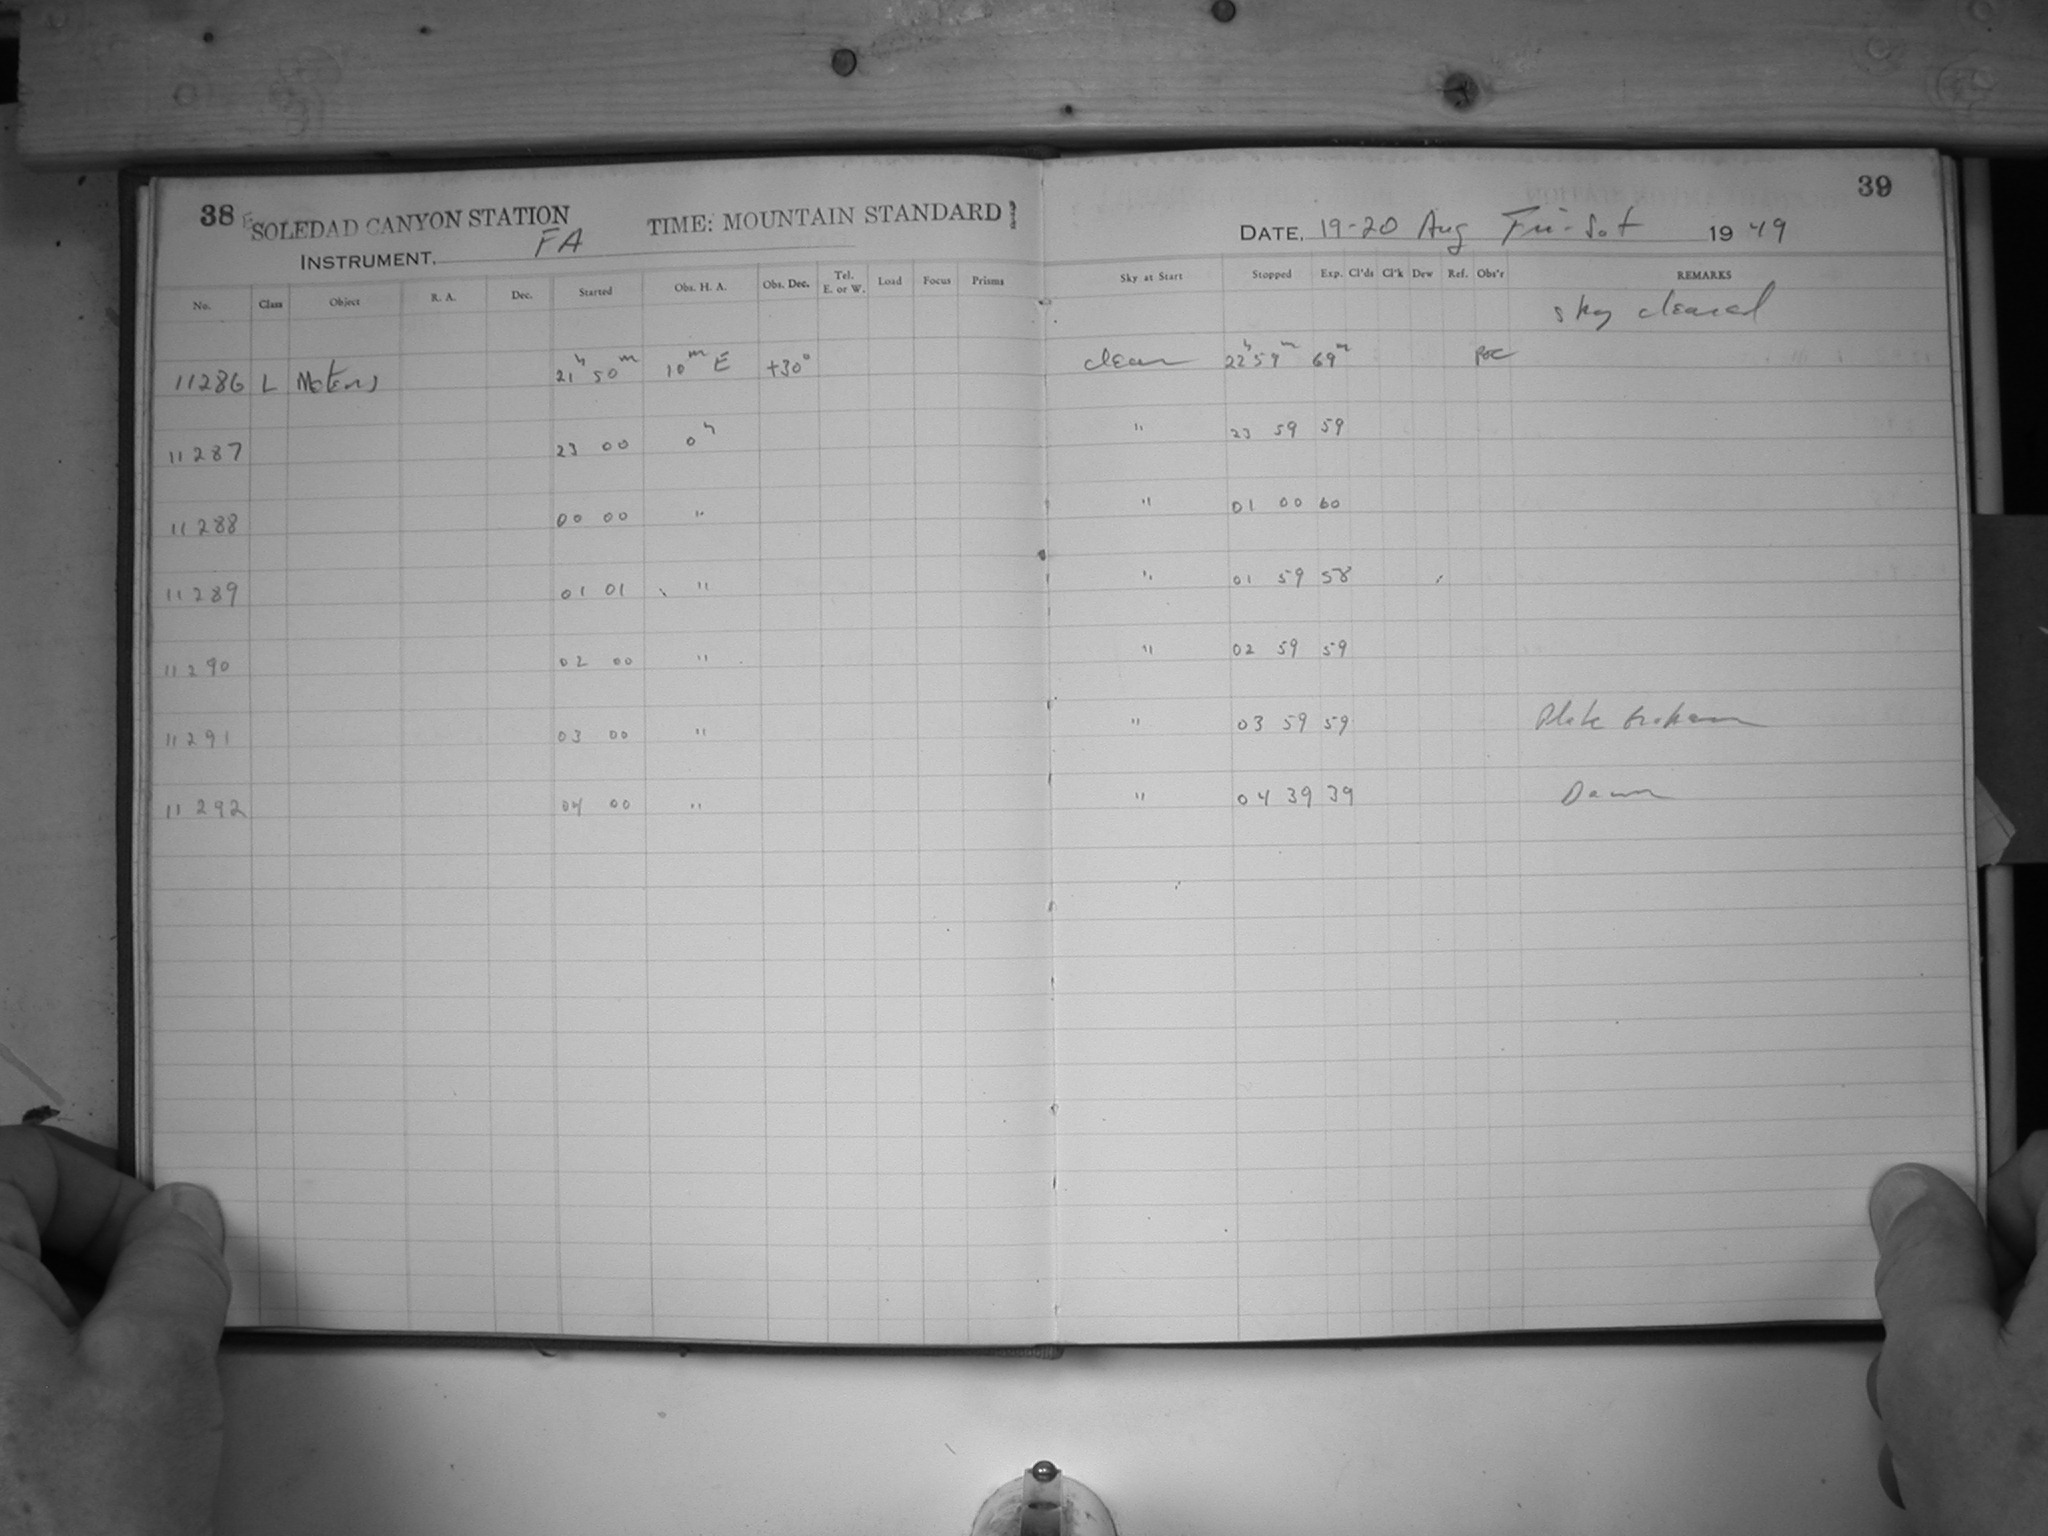 38 SOLEDAD CANYON STATION TIME: MOUNTAIN STANDARD
INSTRUMENT, FA
No. Class Object R. A. Dec. Started Obs. H. A. Obs. Dec. Tel. E. or W. Load Focus Prisms
11286 L Meteors 21h 50m 10m E +30°
11287 23 00 0h
11288 00 00 "
11289 01 01 "
11290 02 00 "
11291 03 00 "
11292 04 00 "
39
DATE, 19-20 Aug Fri-Sat 1949
Sky at Start Stopped Exp. Cl'ds Cl'k Dew Ref. Obs'r REMARKS
sky cleared
clear 22h 59m 69m
" 23 59 59
" 01 00 60
" 01 59 58
" 02 59 59
" 03 59 59 Plate broken
" 04 39 39 Dawn